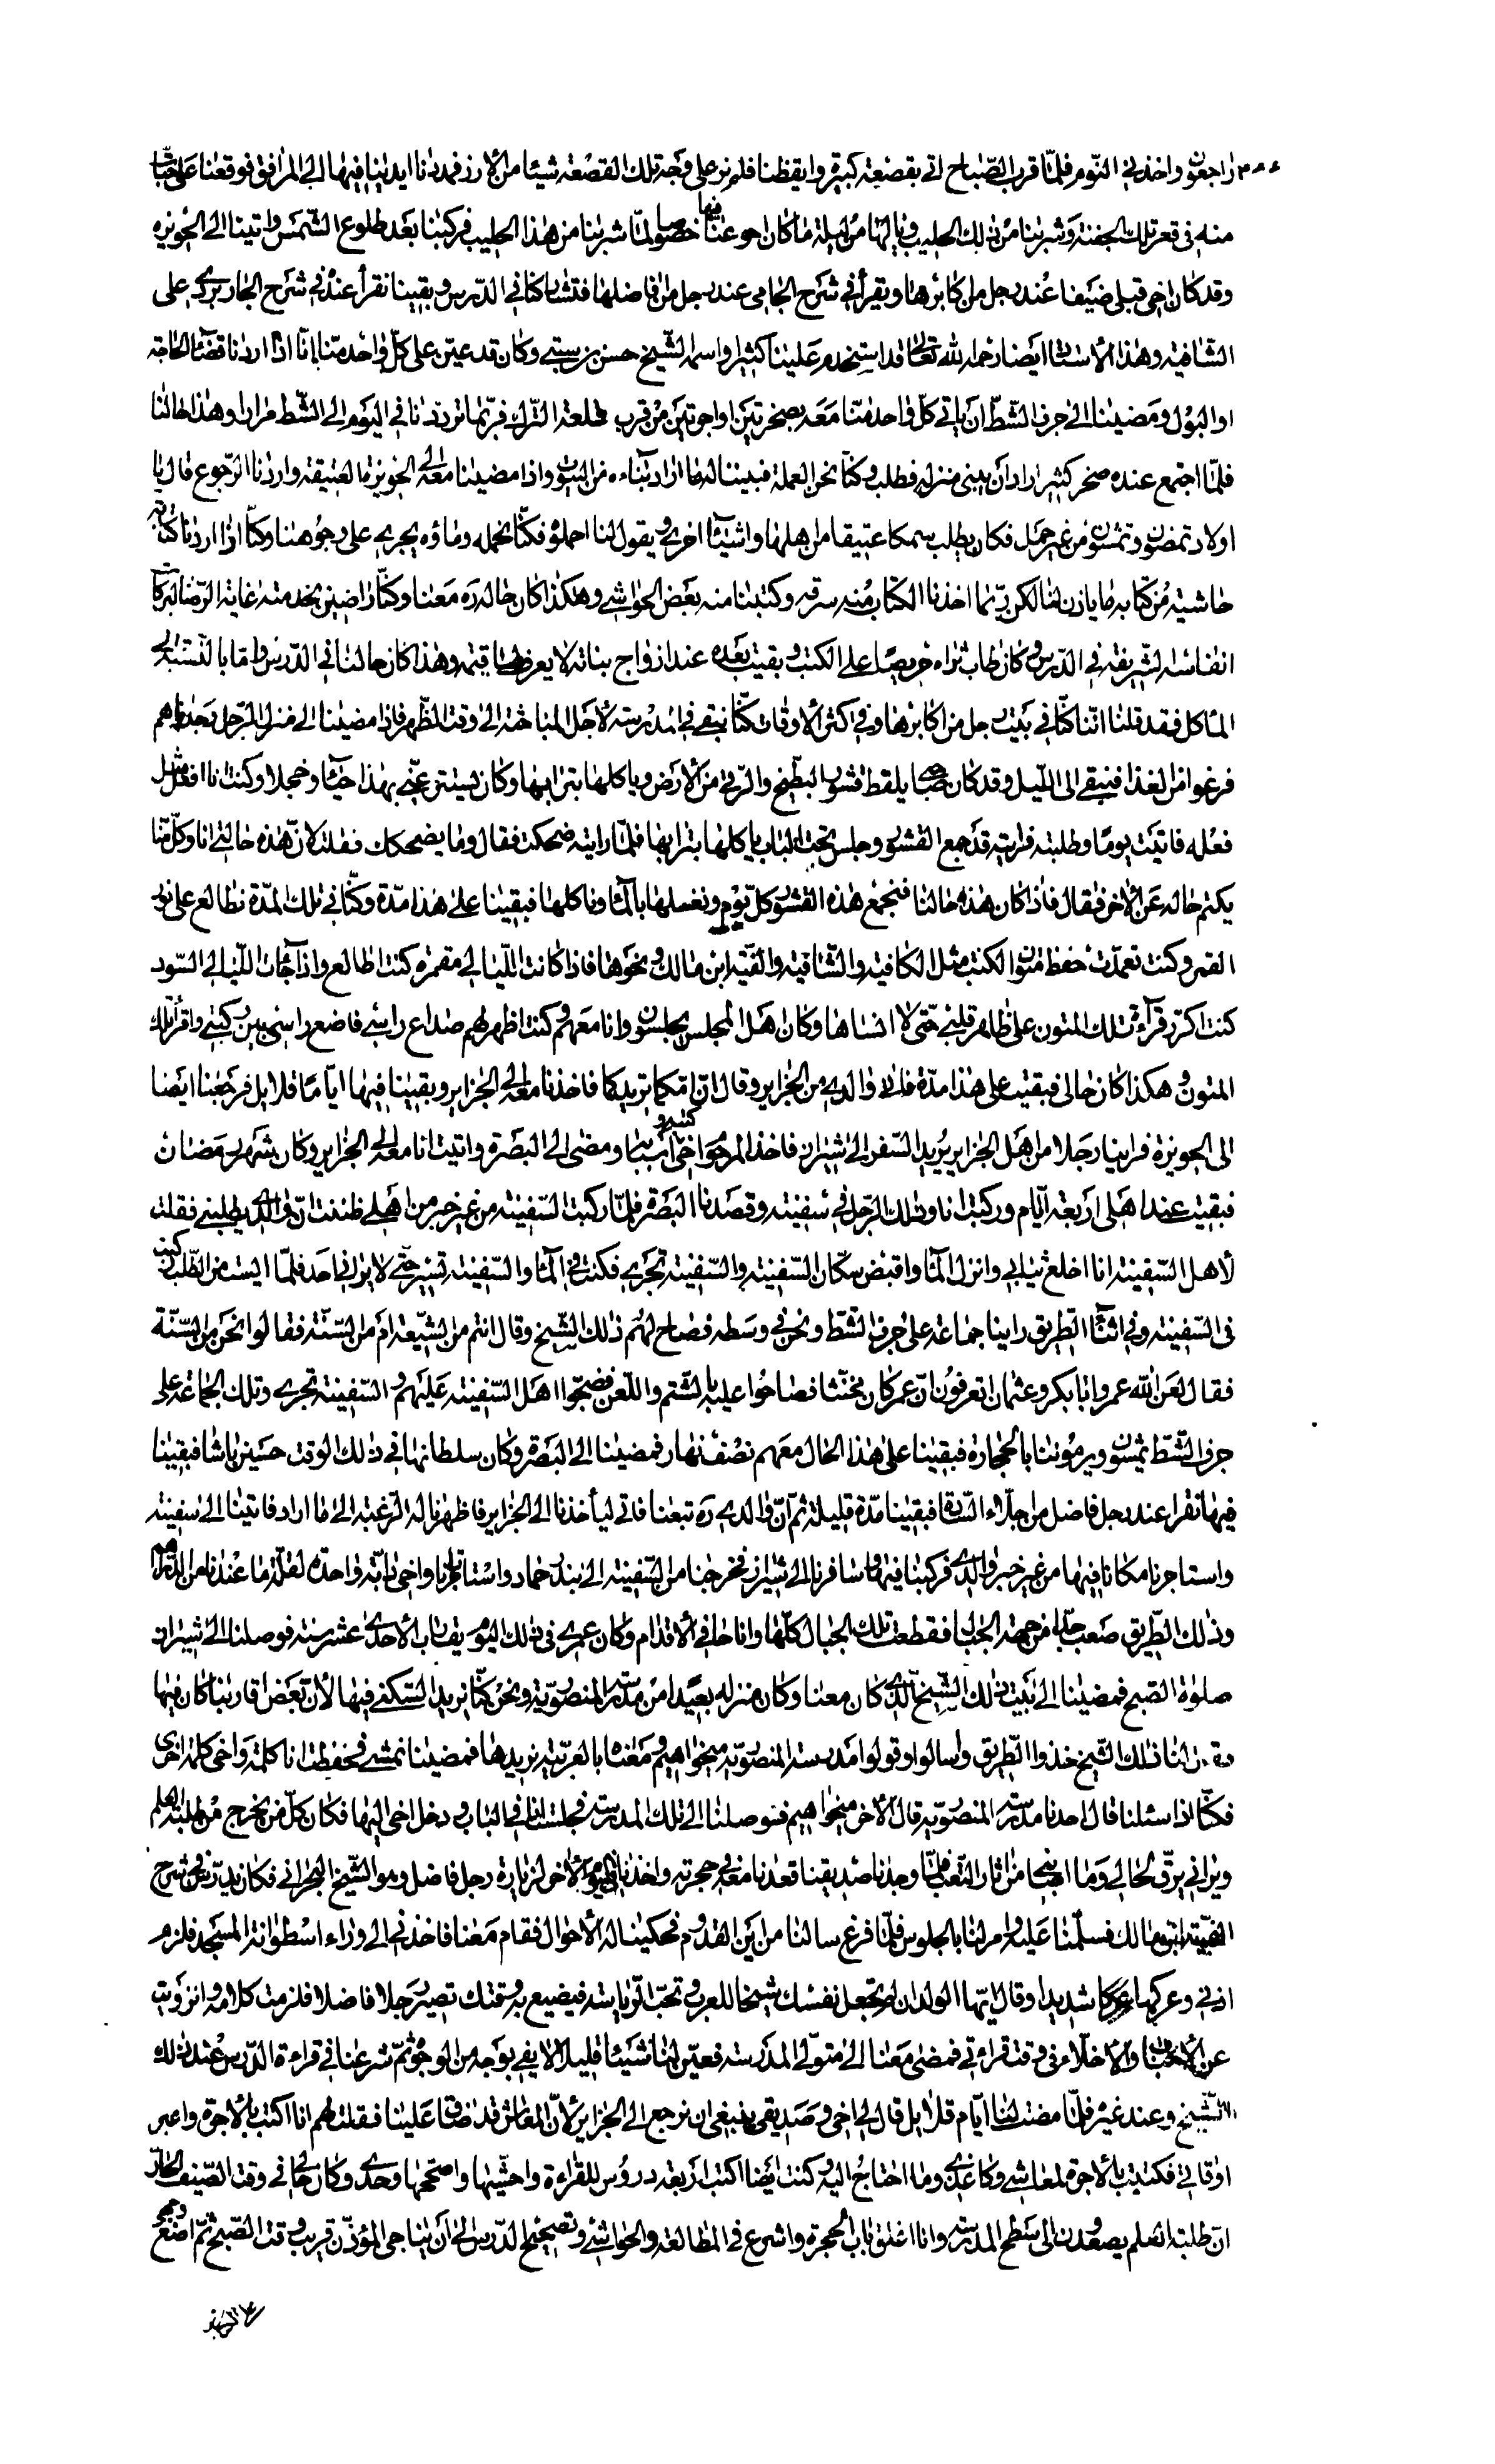 راجعون واخذني النوم فلمّا قرب الصّباح اتى بقصعة كبيرة وايقظنا فلم نر على وجه تلك القصعة شيئا من الأرز فمددنا ايدينا فيها الى المرافق فوقعنا على حبّات
منه في قعر تلك الجفنة وشربنا من ذلك الحليب ويالها من ليلة ما كان اجوعنا فيها خصوصا لمّا شربنا من هذا الحليب فركبنا بعد طلوع الشّمس واتينا الى الحويزه
وقد كان اخي قبلي ضيفا عند رجل من اكابرها ويقرأ في شرح الجامي عند رجل من افاضلها فتشاركنا في الدّرس وبقينا نقرأ عنده في شرح الجاربردي على
الشّافية وهذا الأستاد ايضا رحمه الله تعالى قد استخدم علينا كثيرا واسمه الشّيخ حسن بن سبتي وكان قد عيّن على كلّ واحد منّا بانّا اذا اردنا قضاء الحاجة
او البول ومضينا الى جرف الشّطّ ان ياتي كلّ واحد منّا معه بصخرتين او اجرتين من قرب قلعة الترك فربّما تردّدنا في اليوم الى الشّط مرارا وهذا حالنا
فلمّا اجتمع عنده صخر كثير اراد ان يبني منزله فطلب وكنّا نحن العملة فبنينا له ما اراد بناءه من البيوت واذا مضينا معه الى الحويزة العتيقة واردنا الرّجوع قال يا
اولاد تمضون وتمشون من غير حمل فكان يطلب سمكا عتيقا من اهلها واشيئا اخرى ويقول لنا احملوه فكنّا نحمله وماؤه يجري على وجوهنا وكنّا اذا اردنا كتابة
حاشية من كتابه ما ياذن لنا لكن ربّما اخذنا الكتاب منه سرقة وكتبنا منه بعض الحواشي وهكذا كان حاله ره معنا وكنّا راضين بخدمته غاية الرّضا لبركات
انفاسه الشّريفة في الدّرس وكان طاب ثراه حريصا على الكتب وبقيت بعده عند ازواج بناته لا يعرف لها قيمة وهذا كان حالنا في الدّرس وامّا بالنّسبة الى
المأكل فقد قلنا انّنا كنّا في بيت رجل من اكابرها وفي اكثر الأوقات كنّا نبقى في المدرسة لأجل المباحثة الى وقت الظهر فاذا مضينا الى منزل الرّجل نجدهم
فرغوا من الغذا فنبقى الى اللّيل وقد كان صاحبي يلقط قشور البطّيخ والرّقي من الأرض وياكلها بترابها وكان يستتر عنّي بهذا حياء وخجلا وكنت انا افعل مثل
فعله فاتيت يوما وطلبته فرايته قد جمع القشور وجلس تحت الباب ياكلها بترابها فلمّا رايته ضحكت فقال وما يضحكك فقلت لانّ هذه حالتي انا وكلّ منّا
يكتم حاله عن الأخر فقال فاذا كان هذه حالنا فنجمع هذه القشور كلّ يوم ونغسلها بالماء وناكلها فبقينا على هذا مدّة وكنّا في تلك المدّة نطالع على نور
القمر وكنت تعمدت حفظ متون الكتب مثل الكافية والشّافية والفيّة ابن مالك ونحوها فاذا كانت اللّيالي مقمرة كنت اطالع واذا جائت اللّيالي السّود
كنت اكرّر قرآءة تلك المتون على ظاهر قلبي حتّى لا انساها وكان اهل المجلس يجلسون وانا معهم وكنت اظهر لهم صداع راسي فاضع راسي بين ركبتي واقرأ تلك
المتون وهكذا كان حالي فبقيت على هذا مدّة فاتى والدي من الجزاير وقال انّ امّكما تريدكما فاخذنا معه الى الجزاير وبقينا فيها ايّاما قلايل فرجعنا ايضا
الى الحويزة فراينا رجلا من اهل الجزاير يريد السّفر الى شيراز فاخذ المرحوم اخي كتبه و ومضى الى البصرة واتيت انا معه الى الجزاير وكان شهر رمضان
فبقيت عند اهلي اربعة ايّام وركبت انا وذلك الرّجل في سفينة وقصدنا البصرة فلمّا ركبت السّفينة من غير خبر من اهلي ظننت انّ والدي يطلبني فقلت
لأهل السّفينة انا اخلع ثيابي وانزل الماء واقبض سكّان السّفينة والسّفينة تجري فكنت في الماء والسّفينة تسير حتّى لا يراني احد فلمّا ايست من الطّلب ركبت
في السّفينة وفي اثناء الطّريق راينا جماعة على جرف الشّطّ ونحن في وسطه فصاح لهم ذلك الشّيخ وقال انتم من الشّيعة ام من السّنّة فقالوا نحن من السّنّة
فقال لعن الله عمر وابا بكر وعثمان اتعرفون انّ عمر كان مخنّثا فصاحوا عليه بالشّتم واللّعن فضجّوا اهل السّفينة عليهم والسّفينة تجري وتلك الجماعة على
جرف الشّطّ يمشون ويرموننا بالحجارة فبقينا على هذا الحال معهم نصف نهار فمضينا الى البصرة وكان سلطانها في ذلك الوقت حسين پاشا فبقينا
فيها نقرا عند رجل فاضل من اجلّاء السّادة فبقينا مدّة قليلة ثمّ انّ والدي ره تبعنا فاتى ليأخذنا الى الجزاير فاظهرنا له الرّغبة الى ما اراد فاتينا الى سفينة
واستاجرنا مكانا فيها من غير خبر والدي فركبنا فيها وسافرنا الى شيراز فخرجنا من السّفينة الى بندر حماد واستاجرنا انا واخي دابّة واحدة لقلّة ما عندنا من الدّراهم
وذلك الطّريق صعب جدّا من جهة الجبال فقطعت تلك الجبال كلّها وانا حافي الأقدام وكان عمري في ذلك اليوم يقارب الأحدى عشر سنة فوصلنا الى شيراز
صلوة الصّبح فمضينا الى بيت ذلك الشّيخ الّذي كان معنا وكان منزله بعيدا من مدرسة المنصوريّة ونحن كنّا نريد السّكنى فيها لأنّ بعض اقاربنا كان فيها
لنا ذلك الشّيخ خذوا الطّريق واسالوا وقولوا مدرسة المنصوريّة ميخواهيم ومعناه بالعربيّة نريدها فمضينا نمشي وحفظت انا كلمة واخي كلمة اخرى
فكنّا اذا سئلنا قال احدنا مدرسة المنصوريّه قال الأخر ميخواهيم فوصلنا الى تلك المدرسة فجلست انا في الباب ودخل اخي اليها فكان كلّ من يخرج من طلبة العلم
ويراني يرقّ لحالي وما اصابنا من اثار التّعب فلمّا وجدنا صديقنا قعدنا معه في حجرته واخذنا في اليوم الأخر لزيارة رجل فاضل وهو الشّيخ البحراني فكان يدرّس في شرح
الفيّة ابن مالك فسلّمنا عليه وامر لنا بالجلوس فلمّا فرغ سالنا من اين القدوم فحكينا له الأحوال فقام معنا فاخذني الى وراء اسطوانة المسجد فلزم
اذني وعركها عركا شديدا وقال ايّها الولد ان لم تجعل نفسك شيخا للعرب وتحبّ الرّياسة فيضيع به وقتك تصير رجلا فاضلا فلزمت كلامه وانزويت
عن الأحباب والأخلّاء في وقت قراءتي فمضى معنا الى متولّي المدرسة فعيّن لنا شيئا قليلا لا يفي بوجه من الوجوه ثمّ شرعنا في قراءة الدّرس عند ذلك
الشّيخ وعند غيره فلمّا مضت لنا ايّام قلايل قال لي اخي وصديقي ينبغي ان نرجع الى الجزاير لانّ المعاش قد ضاق علينا فقلت لهم انا اكتب بالأجرة واعبر
اوقاتي فكتبت بالأجرة لمعاشي وكاغذي وما احتاج اليه وكنت ايضا اكتب اربعة دروس للقراءة واحشّيها واصحّحها وحدي وكان حالي في وقت الصّيف الحارّ
انّ طلبة العلم يصعدون الى سطح المدرسة وانا اغلق باب الحجرة واشرع في المطالعة والحواشي وتصحيح الدّرس الى ان يناجي المؤذّن قريب وقت الصّبح ثمّ اضع وجهي